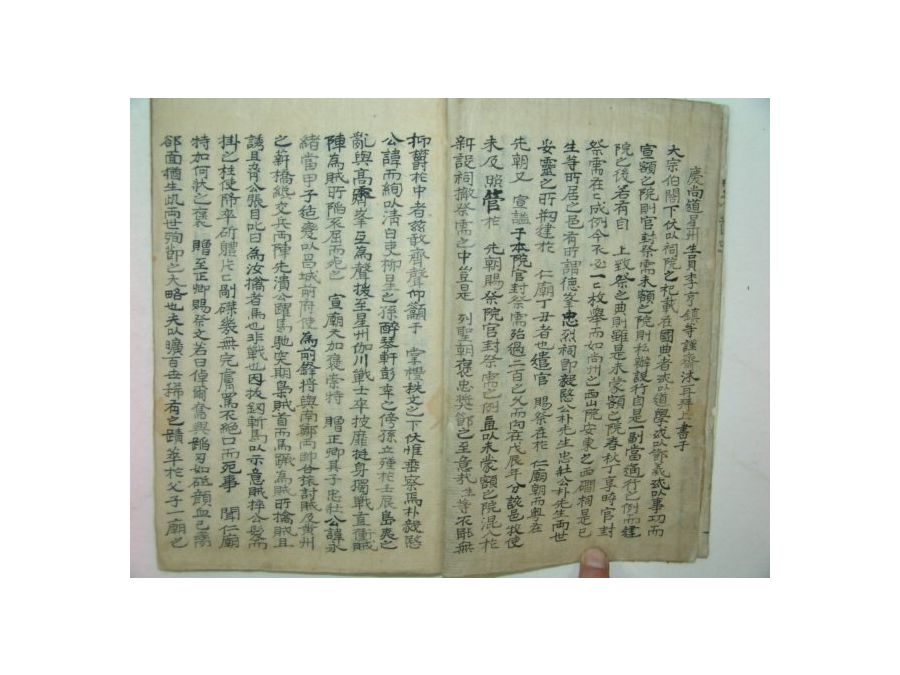 慶尚道星州生員李亨鎮等謹齋沐再拜上書于
大宗伯閤下伏以祠院之祀載在國典者或以道學或以節義或以事功而
宣額之院則官封祭需未額之院則私辦設行自是一副當通行之例而建
院之後若有自 上致祭之典則雖是未蒙額之院春秋丁享時官封
祭需在在成例今不必一一枚舉而如尚州之西山院安東之西磵祠是已
生等所居之邑有所謂德峯忠烈祠即毅愍公朴先生忠壯公朴先生兩世
妥靈之所而刱建於 仁廟丁丑者也遣官 賜祭在於 仁廟朝而粤在
先朝又 宣謚于本院官封祭需殆過二百之久而向在戊辰年分該邑故使
未及照管於 先朝賜祭院官封祭需之例直以未蒙額之院混入於
新設祠撤祭需之中豈是 列聖朝褒忠獎節之至意哉生等不耶無
抑欝於中者茲敢齊聲仰籲于 崇禮秩文之下伏惟垂察焉朴毅愍
公諱而絢以清白吏柳星之孫醉琴軒彭年之傍孫立殣於壬辰島夷之
亂與高霽峯互為聲援至星州伽川戰士卒披靡挺身獨戰直衝賊
陣為賊所陷不屈而死之 宣廟大加褒崇特 贈正卿其子忠壯公諱永
緒當甲子适變以昌城前府使為前鋒將與南鄭兩帥合陣討賊及黃州
之薪橋纔交兵兩陣先潰公躍馬馳突期梟賊首而馬蹶為賊所擒賊且
誘且脅公張目叱曰為汝擒者馬也非戰也因拔劒斬馬以示意賊捽公髮而
掛之柱使降卒斫體片片剮磔裳無完膚罵不絕口而死事 聞仁廟
特加何狀之褒 贈至正卿賜祭文若曰倬爾奮興蹈刃如砥顏血已瘍
郤面猶生此兩世殉節之大略也夫以曠百世稀有之蹟萃於父子一廟之